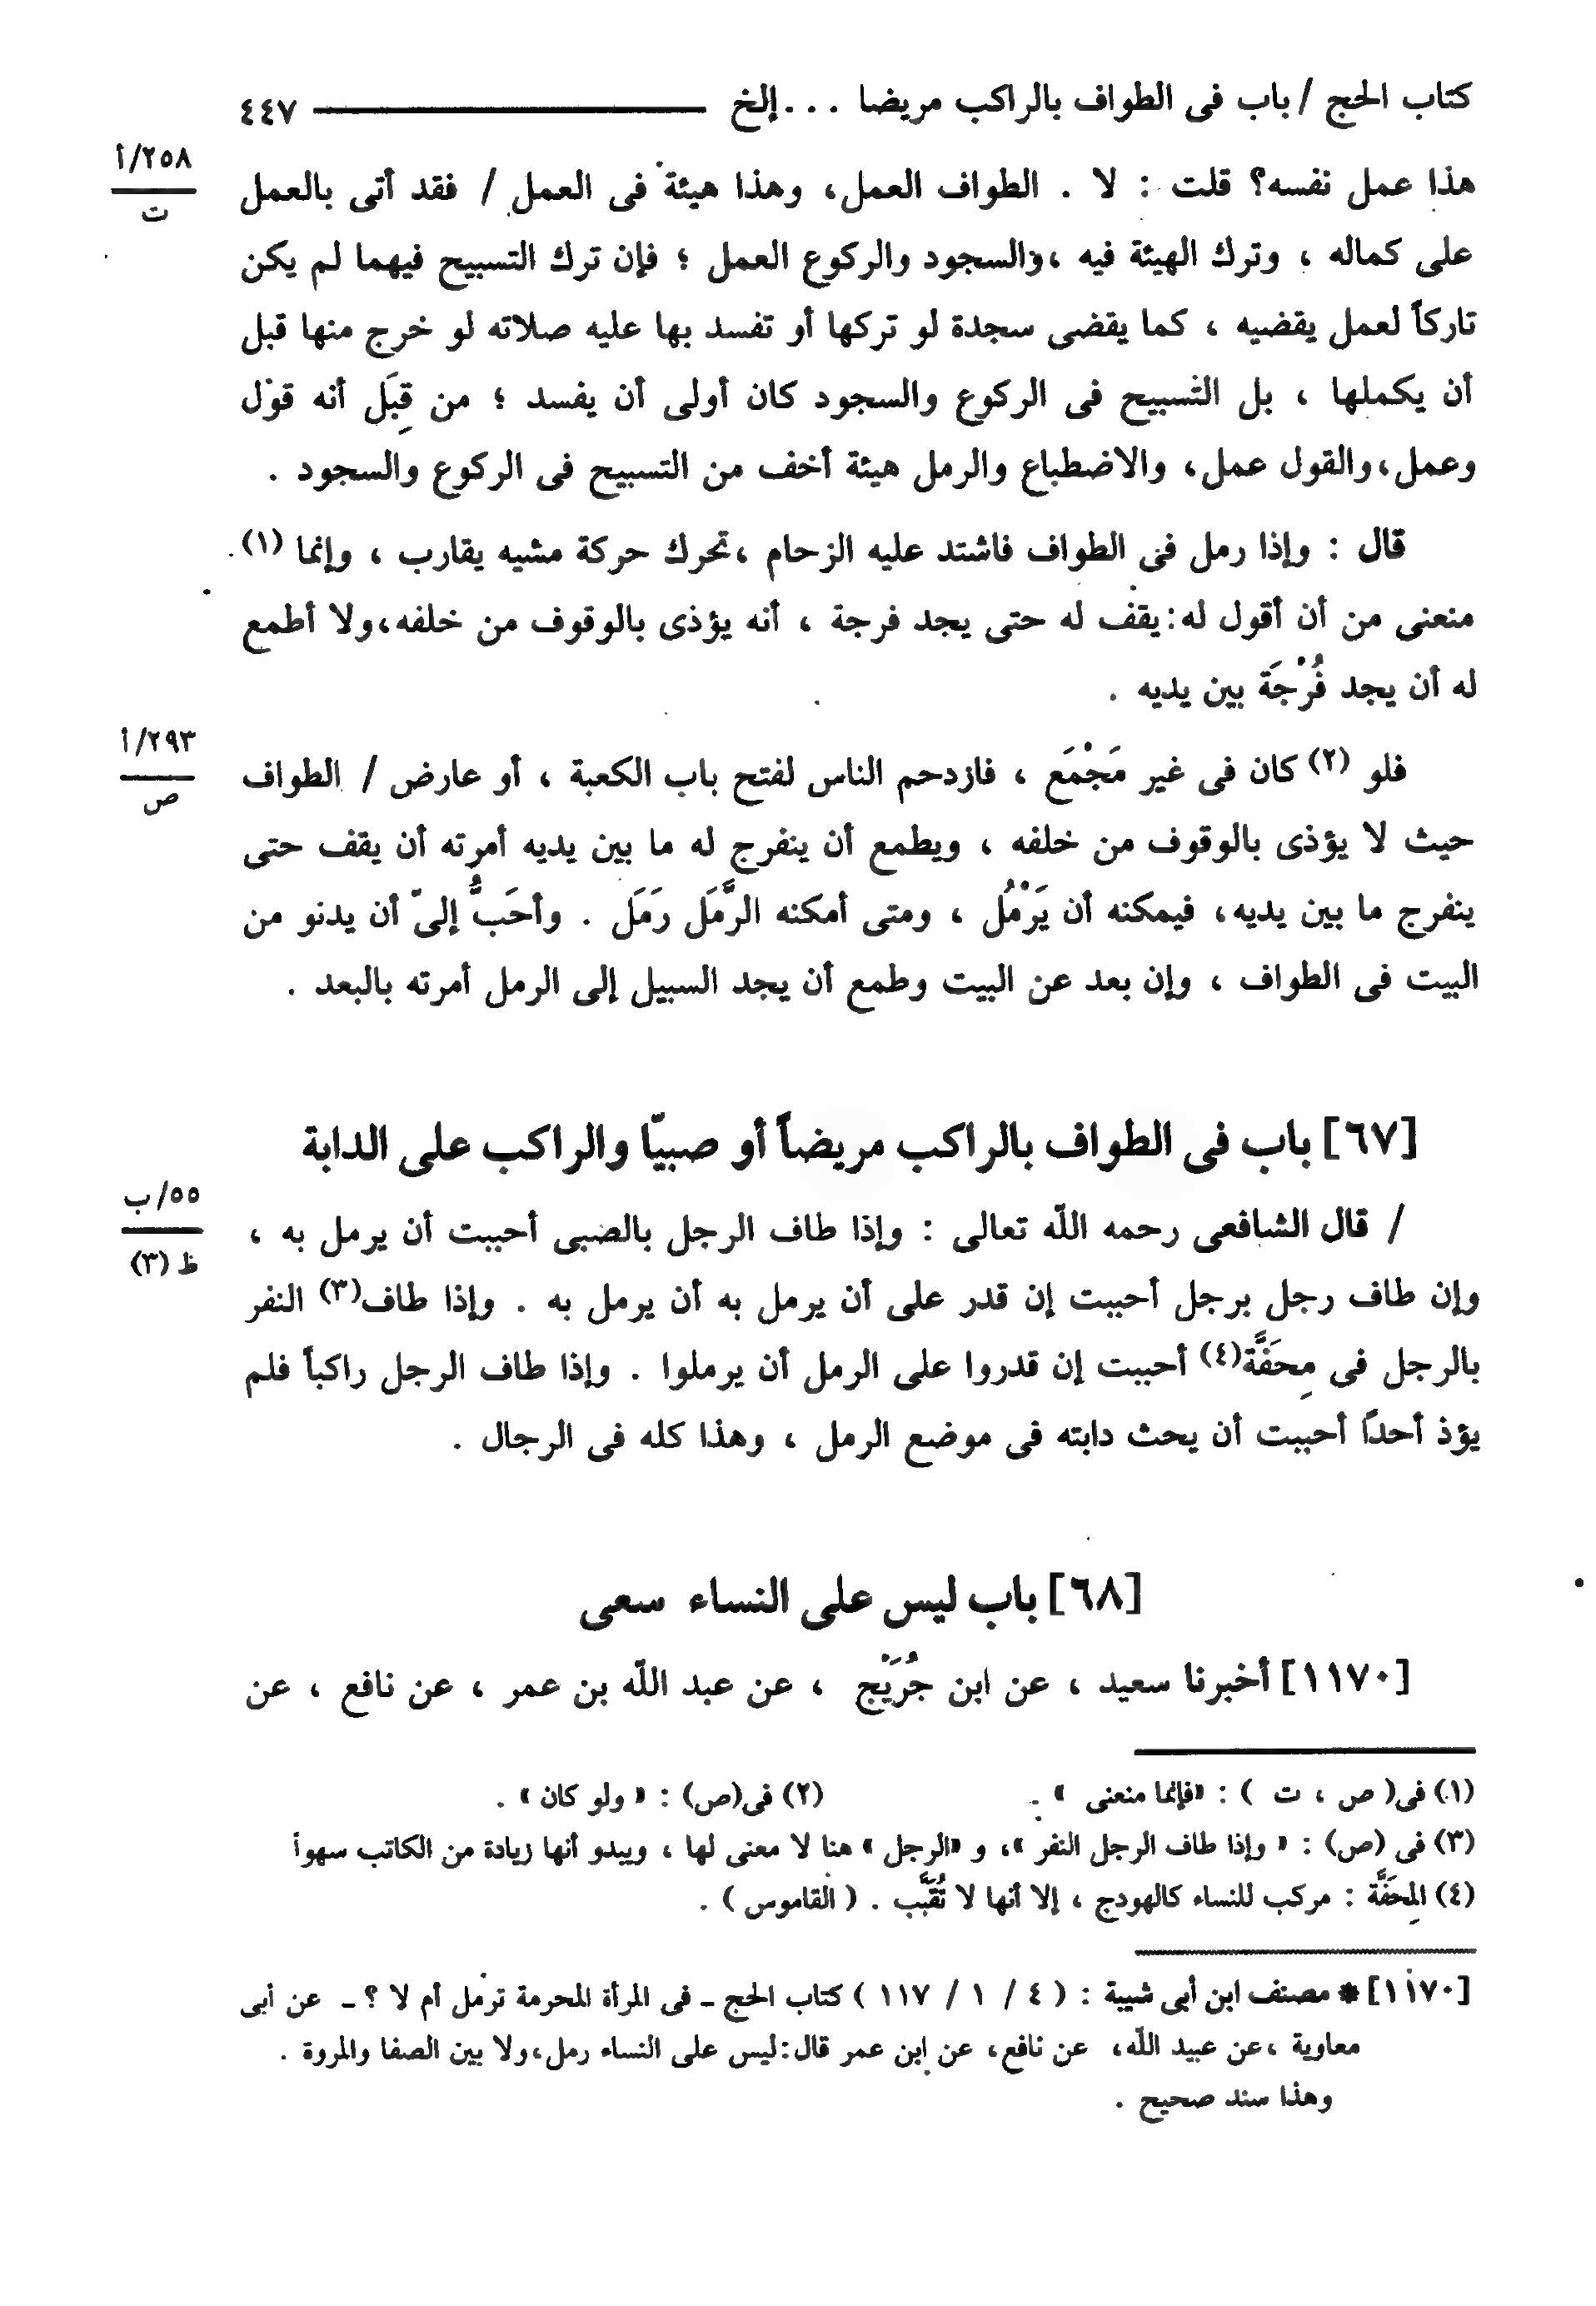 كتاب الحج / باب فى الطواف بالراكب مريضا . . . إلخ ٤٤٧
٢٥٨/أ
ت
هذا عمل نفسه؟ قلت : لا . الطواف العمل، وهذا هيئة فى العمل / فقد أتى بالعمل
على كماله ، وترك الهيئة فيه ،والسجود والركوع العمل ؛ فإن ترك التسبيح فيهما لم يكن
تاركاً لعمل يقضيه ، كما يقضى سجدة لو تركها أو تفسد بها عليه صلاته لو خرج منها قبل
أن يكملها ، بل التسبيح فى الركوع والسجود كان أولى أن يفسد ؛ من قِبَل أنه قول
وعمل،والقول عمل، والاضطباع والرمل هيئة أخف من التسبيح فى الركوع والسجود .
قال : وإذا رمل فى الطواف فاشتد عليه الزحام ،تحرك حركة مشيه يقارب ، وإنما (١)
منعنى من أن أقول له:يقف له حتى يجد فرجة ، أنه يؤذى بالوقوف من خلفه،ولا أطمع
له أن يجد فُرْجَة بين يديه .
٢٩٣/أ
ص
فلو (٢) كان فى غير مَجْمَع ، فازدحم الناس لفتح باب الكعبة ، أو عارض / الطواف
حيث لا يؤذى بالوقوف من خلفه ، ويطمع أن ينفرج له ما بين يديه أمرته أن يقف حتى
ينفرج ما بين يديه، فيمكنه أن يَرْمُل ، ومتى أمكنه الرَّمَل رَمَل . وأحَبُّ إلىّ أن يدنو من
البيت فى الطواف ، وإن بعد عن البيت وطمع أن يجد السبيل إلى الرمل أمرته بالبعد .
[٦٧] باب فى الطواف بالراكب مريضاً أو صبيّا والراكب على الدابة
٥٥/ب
ظ (٣)
/ قال الشافعى رحمه اللّه تعالى : وإذا طاف الرجل بالصبى أحببت أن يرمل به ،
وإن طاف رجل برجل أحببت إن قدر على أن يرمل به أن يرمل به . وإذا طاف(٣) النفر
بالرجل فى مِحَفَّة(٤) أحببت إن قدروا على الرمل أن يرملوا . وإذا طاف الرجل راكباً فلم
يؤذ أحداً أحببت أن يحث دابته فى موضع الرمل ، وهذا كله فى الرجال .
[٦٨] باب ليس على النساء سعى
[١١٧٠] أخبرنا سعيد ، عن ابن جُرَيْج ، عن عبد اللّه بن عمر ، عن نافع ، عن
(١) فى( ص ، ت ) : «فإنما منعنى » . (٢) فى(ص) : « ولو كان » .
(٣) فى (ص) : « وإذا طاف الرجل النفر »، و «الرجل » هنا لا معنى لها ، ويبدو أنها زيادة من الكاتب سهواً
(٤) المِحَفَّة : مركب للنساء كالهودج ، إلا أنها لا تُقَبَّب . ( القاموس ) .
[١١٧٠] * مصنف ابن أبى شيبة : ( ٤ / ١ / ١١٧ ) كتاب الحج ـ فى المرأة المحرمة ترمل أم لا ؟ ـ عن أبى
معاوية ،عن عبيد اللّه، عن نافع، عن ابن عمر قال:ليس على النساء رمل،ولا بين الصفا والمروة .
وهذا سند صحيح .